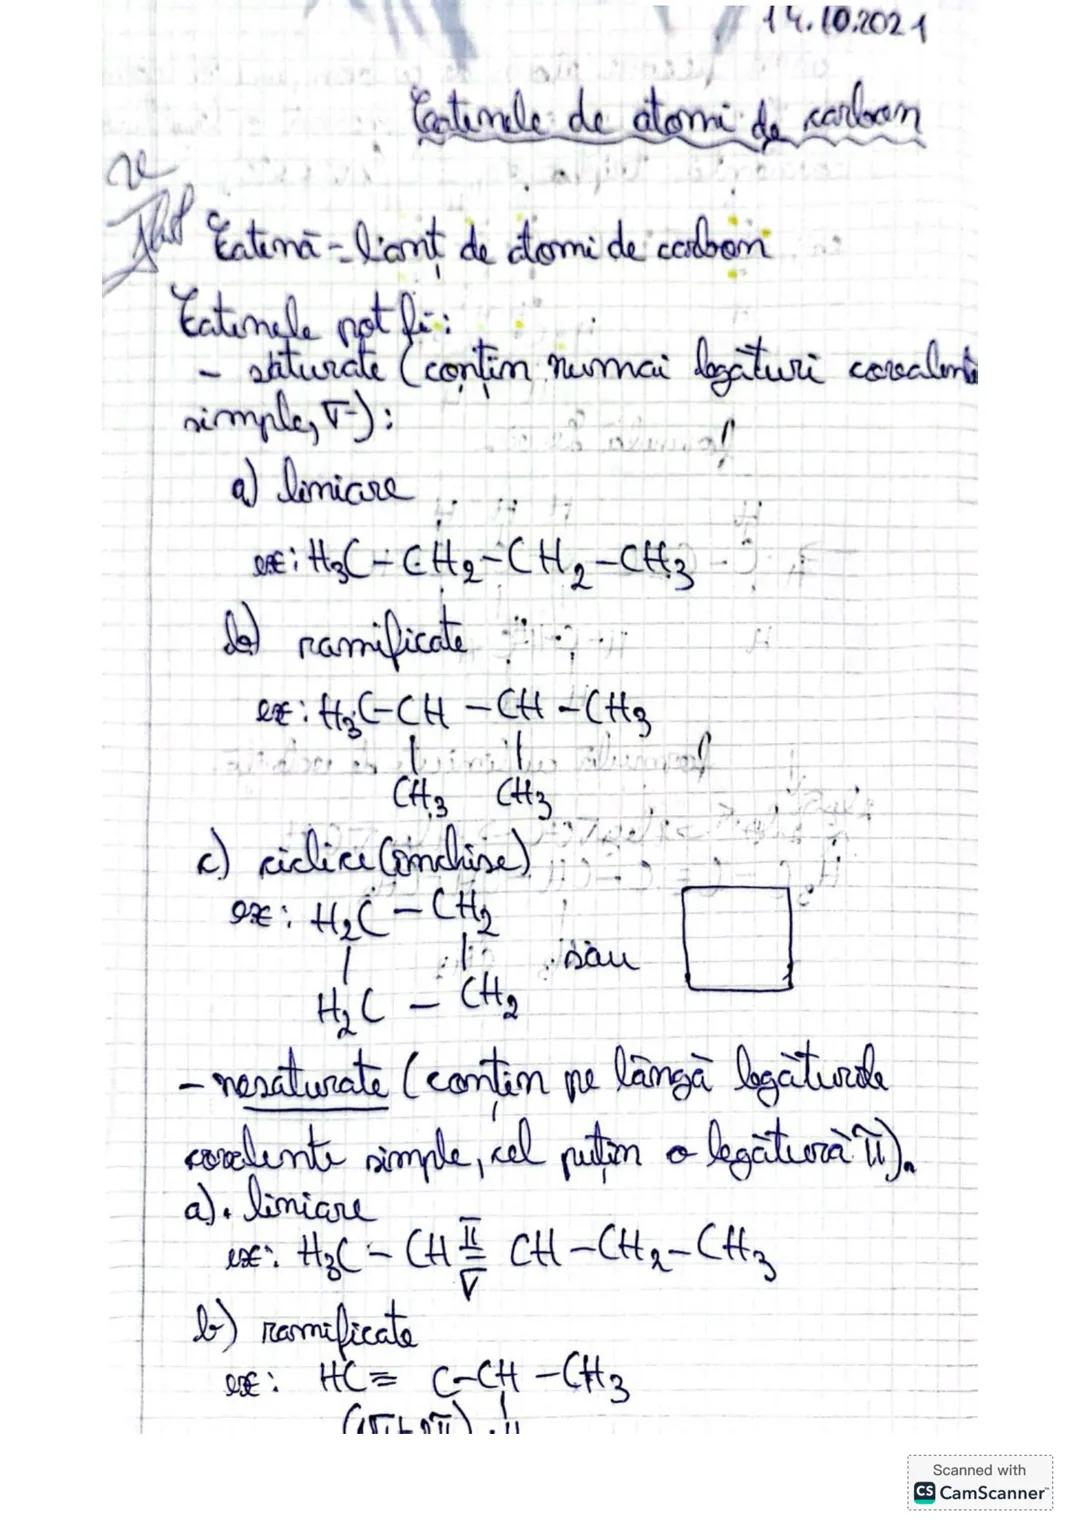 14.10.2021
Catenele de atomi de carbon
Catenă - lanț de atomi de carbon
Catenele pot fi:
- saturate (conțin numai legături covalente
simple, σ-):
a) liniare
ex: H₃C-CH₂-CH₂-CH₃
b) ramificate
ex: H₃C-CH-CH-CH₃
CH₃ CH₃
c) ciclice (închise)
ex: H₂C-CH₂
sau
H₂C-CH₂
- nesaturate (conțin pe lângă legăturile
covalente simple, cel puțin o legătură π).
a). liniare
π
ex: H₃C-CH=CH-CH₂-CH₃
σ
b) ramificate
ex: HC≡C-CH-CH₃
(1σ+2π)
Scanned with
CS CamScanner